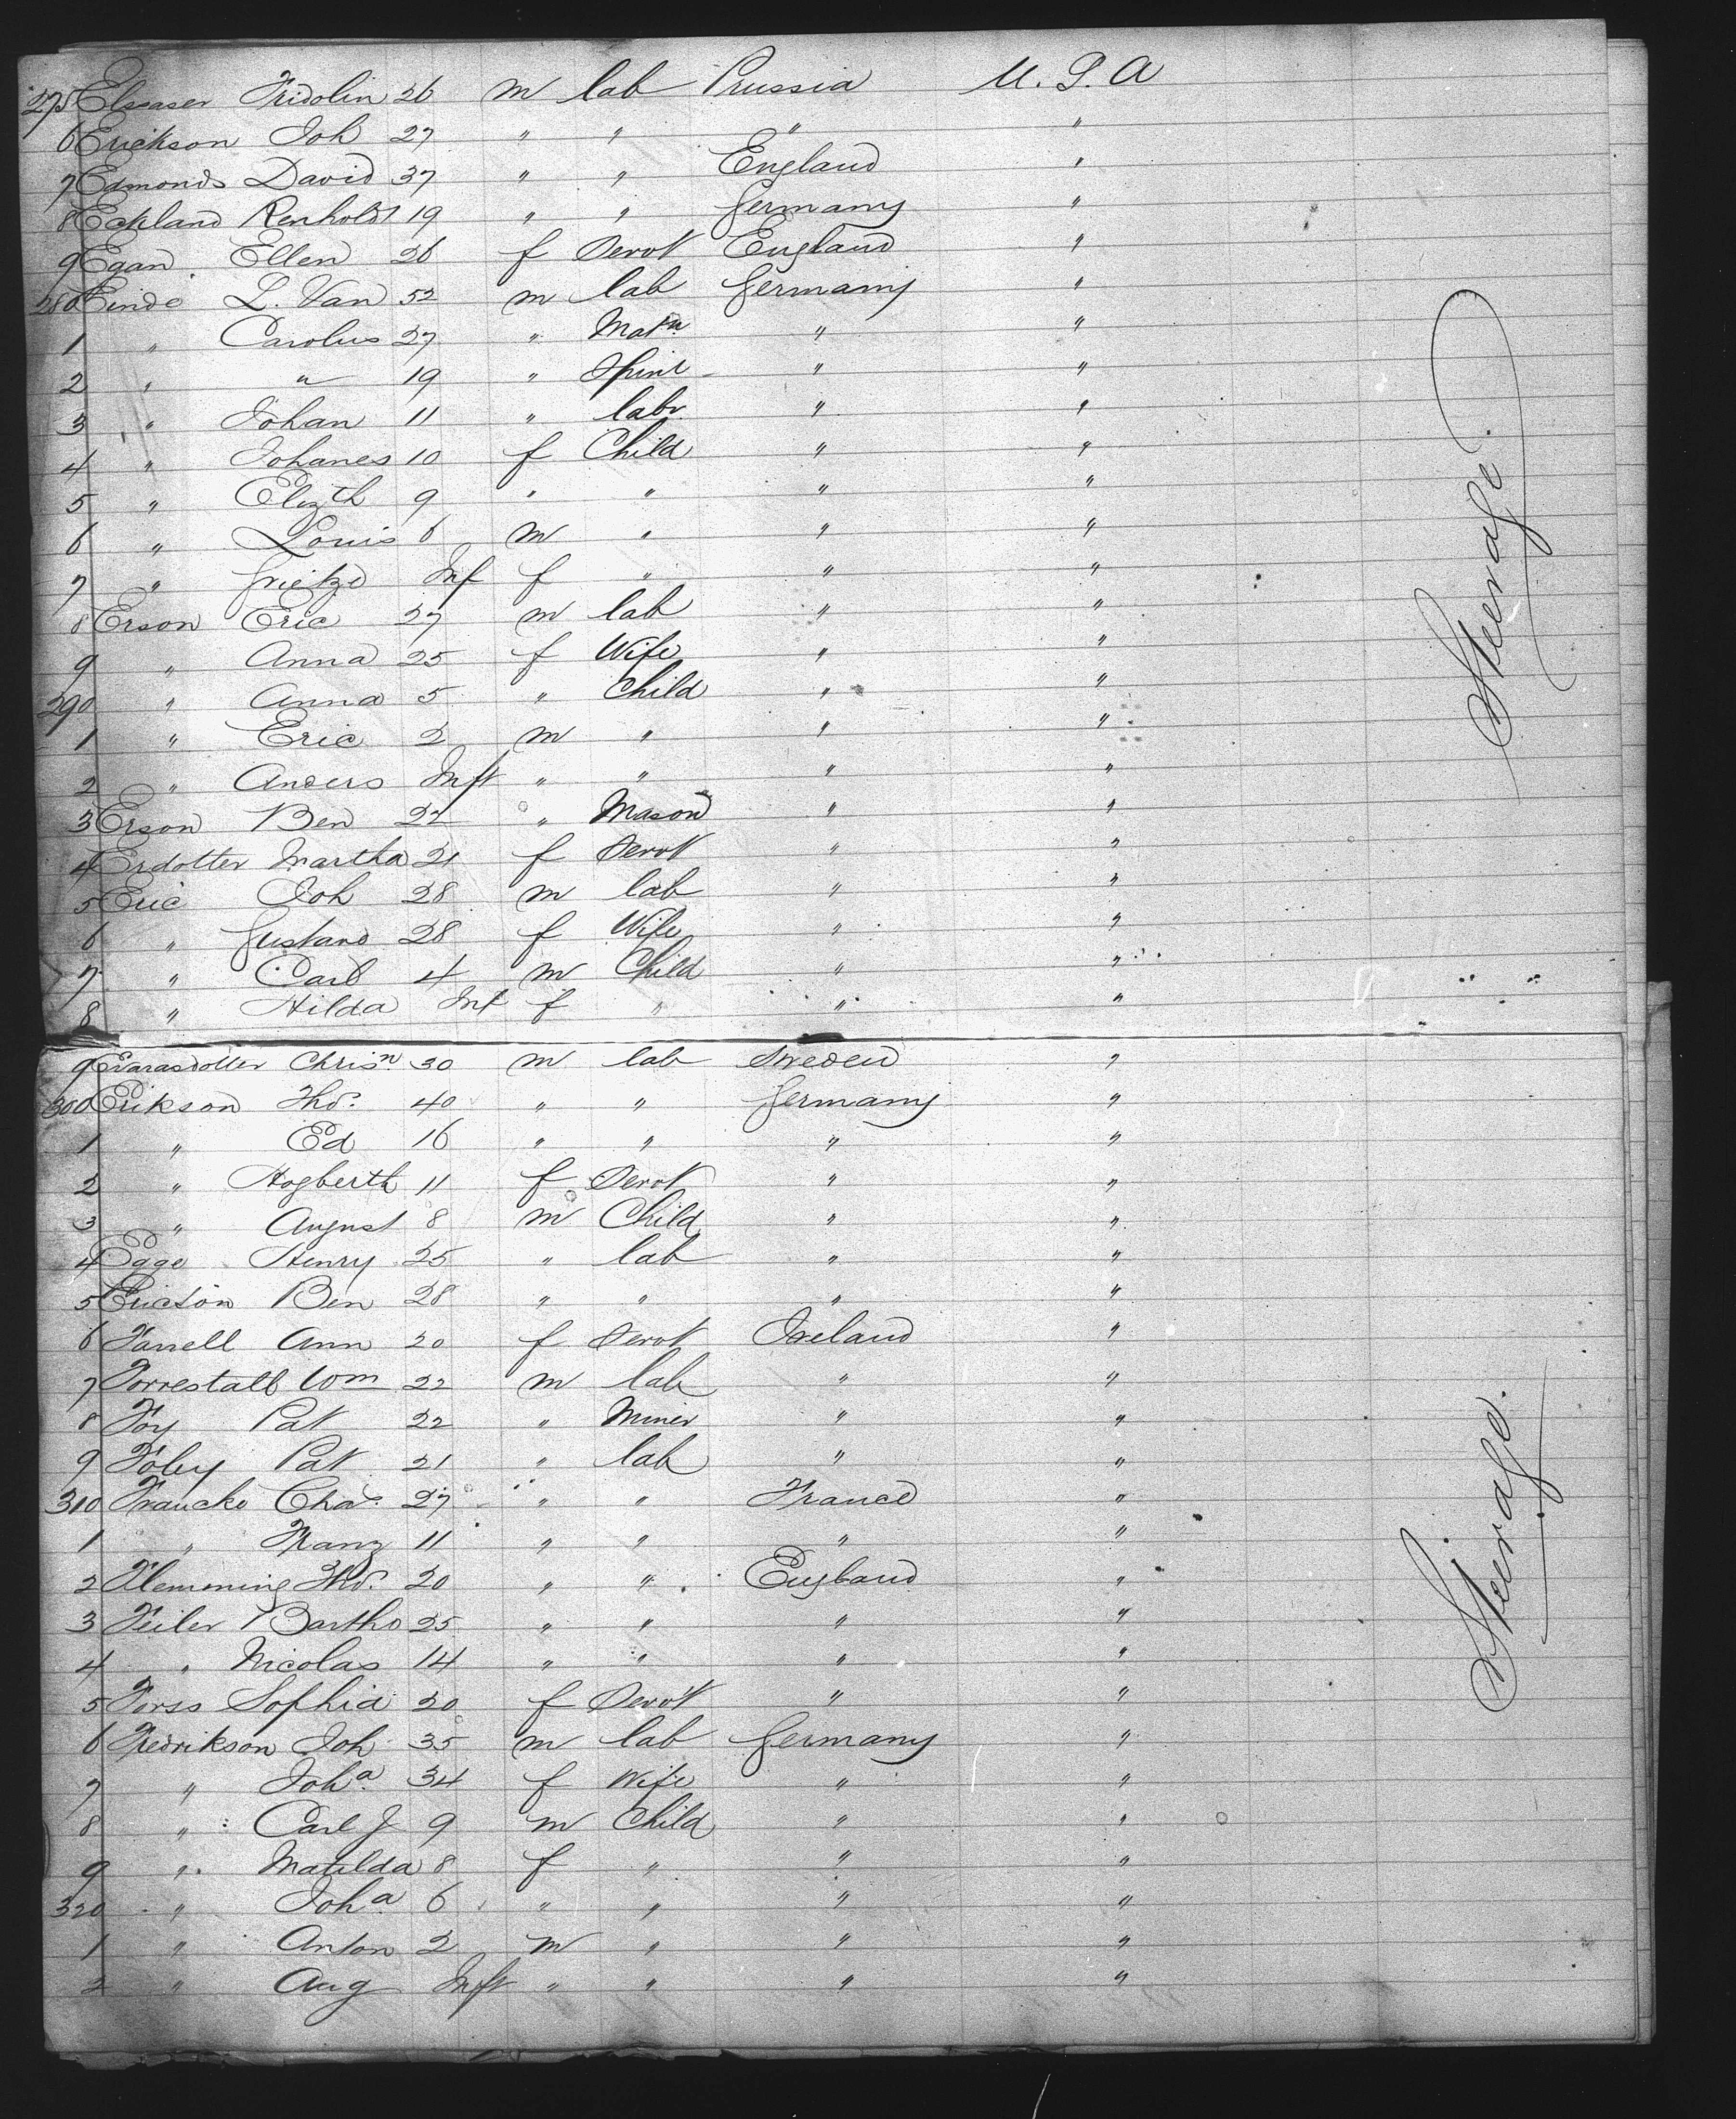 275 Elsaser Fridolin 26 m lab Prussia U.S.A
6 Erickson Joh 27 " " " "
7 Edmonds David 37 " " England "
8 Eckland Renholdt 19 " " Germany "
9 Egan Ellen 26 f Servt England "
280 Einde L. Van 52 m lab Germany "
1 " Carolus 27 " " "
2 " " 19 " " "
3 " Johan 11 " labr " "
4 " Johanes 10 f Child " "
5 " Elizth 9 " " " "
6 " Louis 6 m " " "
7 " Grietze Inf f " " "
8 Erson Eric 27 m lab " "
9 " Anna 25 f Wife " "
290 " Anna 5 " Child " "
1 " Eric 2 m " " "
2 " Anders Inft " " " "
3 Erson Ben 22 " Mason " "
4 Erdotter Martha 21 f Servt " "
5 Eric Joh 28 m lab " "
6 " Gustava 28 f Wife " "
7 " Carl 4 m Child " "
8 " Hilda Inf f " " "
9 Chrisn 30 m lab Sweden "
300 Erikson Thos. 40 " " Germany "
1 " Ed 16 " " " "
2 " Hogberth 11 f Servt " "
3 " August 8 m Child " "
4 Egge Henry 25 " lab " "
5 Ericson Ben 28 " " " "
6 Farrell Ann 20 f Servt Ireland "
7 Forrestall Wm 22 m lab " "
8 Foy Pat 22 " Miner " "
9 Foley Pat 21 " lab " "
310 Francke Chas. 27 " " France "
1 " Franz 11 " " " "
2 Flemming Thos. 20 " " England "
3 Feiler Bartho 25 " " " "
4 " Nicolas 14 " " " "
5 Forss Sophia 20 f Servt " "
6 Fredrikson Joh 35 m lab Germany "
7 " Joha 34 f Wife " "
8 " Carl J 9 m Child " "
9 " Matilda 8 f " " "
320 " Joha 6 " " " "
1 " Anton 2 m " " "
2 " Aug Inft " " " "
Steerage.
Steerage.